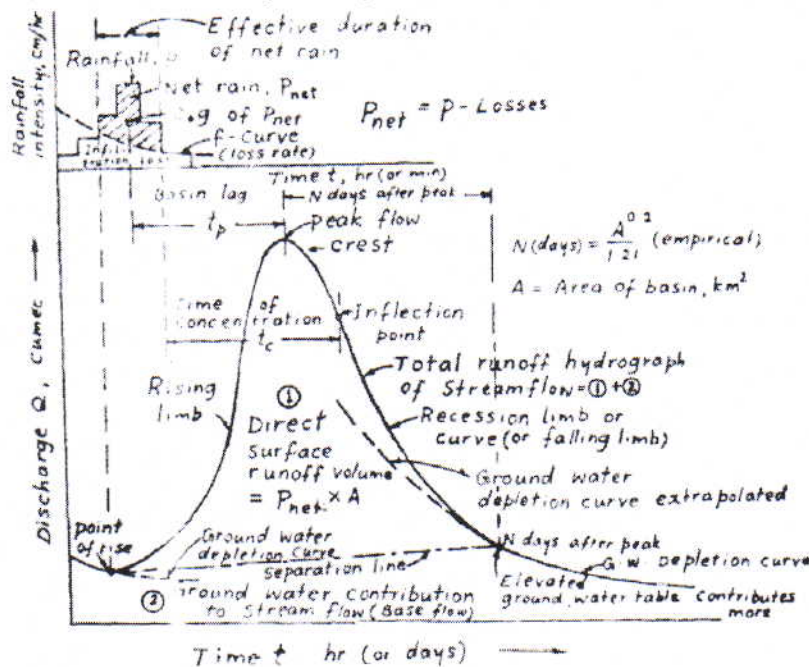 Effective duration
of net rain
Rainfall, p
Net rain, Pnet
C.g of Pnet
Pnet = p - Losses
f-Curve
(loss rate)
Infil-
tration Loss
Rainfall
intensity, cm/hr
Time t, hr (or min)
Basin lag
N days after peak
tp
peak flow
crest
N(days) = A^0.2 / 1.21 (empirical)
A = Area of basin, km²
Time of
Concentration
tc
Inflection
point
Total runoff hydrograph
of Streamflow = ① + ②
Rising
limb
①
Direct
surface
runoff volume
= Pnet × A
Recession limb or
curve (or falling limb)
Ground water
depletion curve extrapolated
Discharge Q, Cumec
point
of rise
Ground water
depletion Curve
Separation line
N days after peak
G.W. Depletion curve
②
Ground water contribution
to Stream flow (Base flow)
Elevated
ground water table contributes
more
Time t hr (or days)